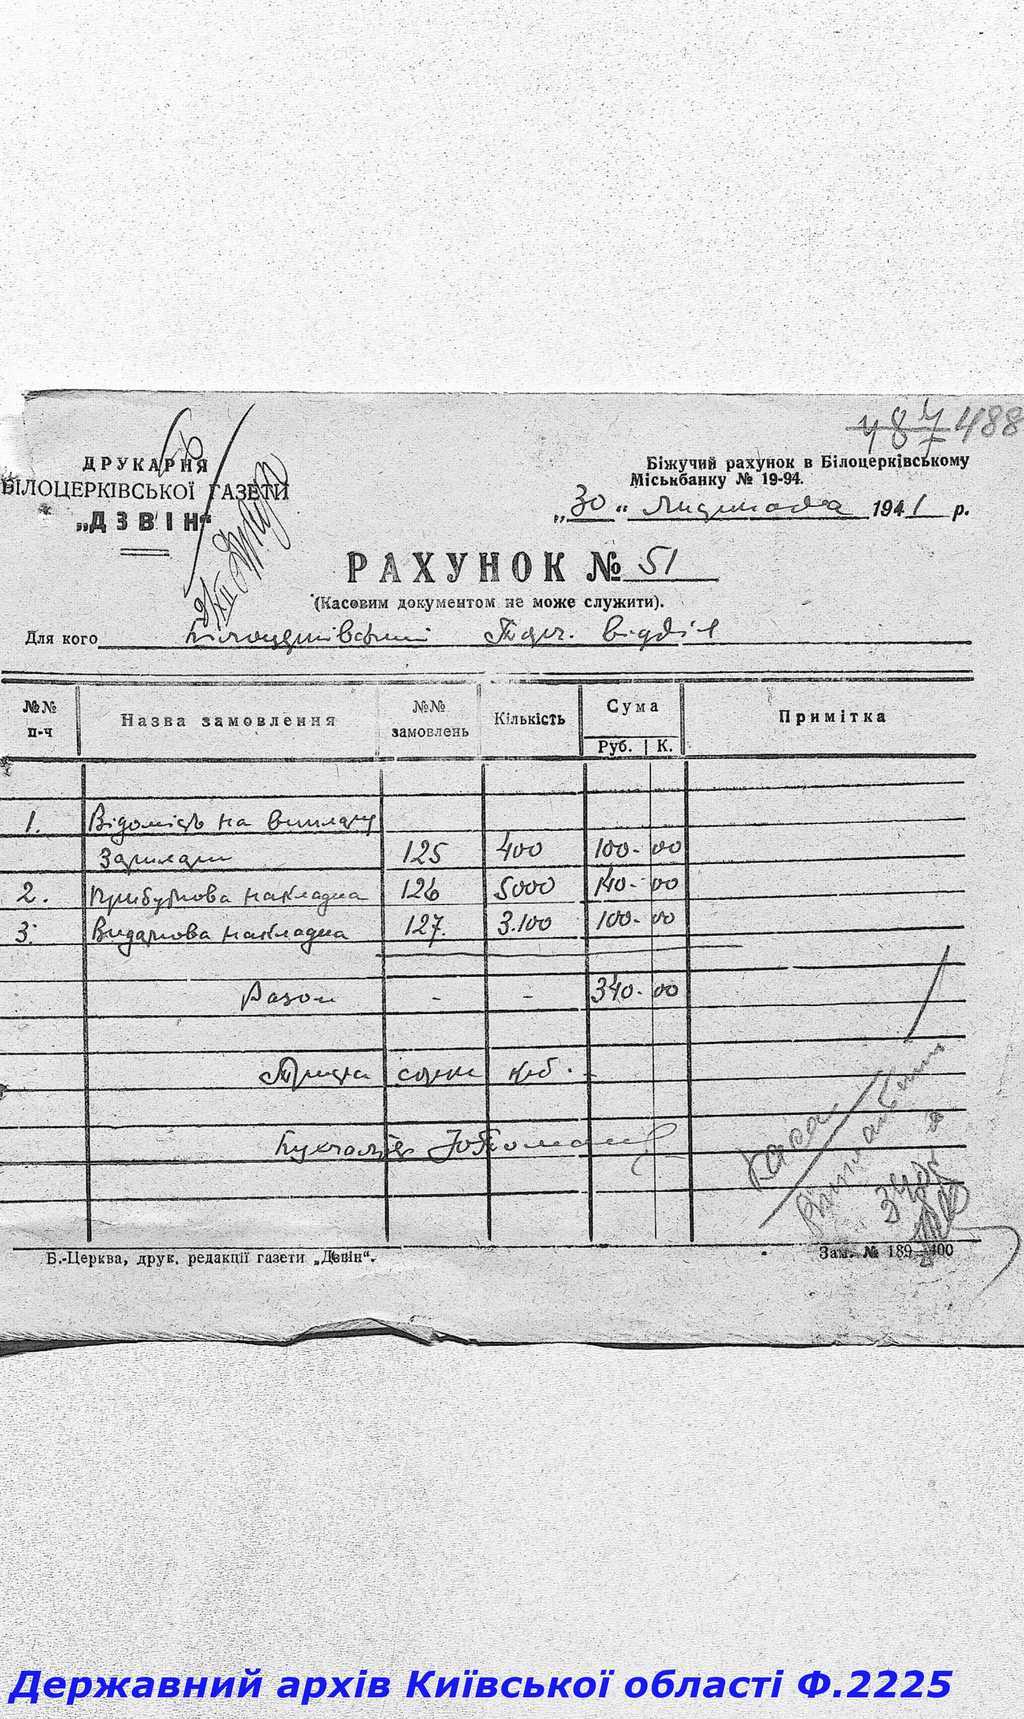 487 488
ДРУКАРНЯ
БІЛОЦЕРКІВСЬКОЇ ГАЗЕТИ
„ДЗВІН“
Біжучий рахунок в Білоцерківському
Міськбанку № 19-94.
„30“ листопада 1941 р.
9/XII
РАХУНОК № 51
(Касовим документом не може служити).
Для кого Білоцерківський Торг. відділ
№№ п-ч Назва замовлення №№ замовлень Кількість Сума Руб. К. Примітка
1. Відомість на виплату
Зарплати 125 400 100-00
2. Прибуткова накладна 126 5000 140-00
3. Видаткова накладна 127. 3.100 100-00
Разом - - 340-00
Триста сорок крб.
Бухгалтер
Каса
340
Б.-Церква, друк. редакції газети „Дзвін“.
Зам. № 189—400
Державний архів Київської області Ф.2225